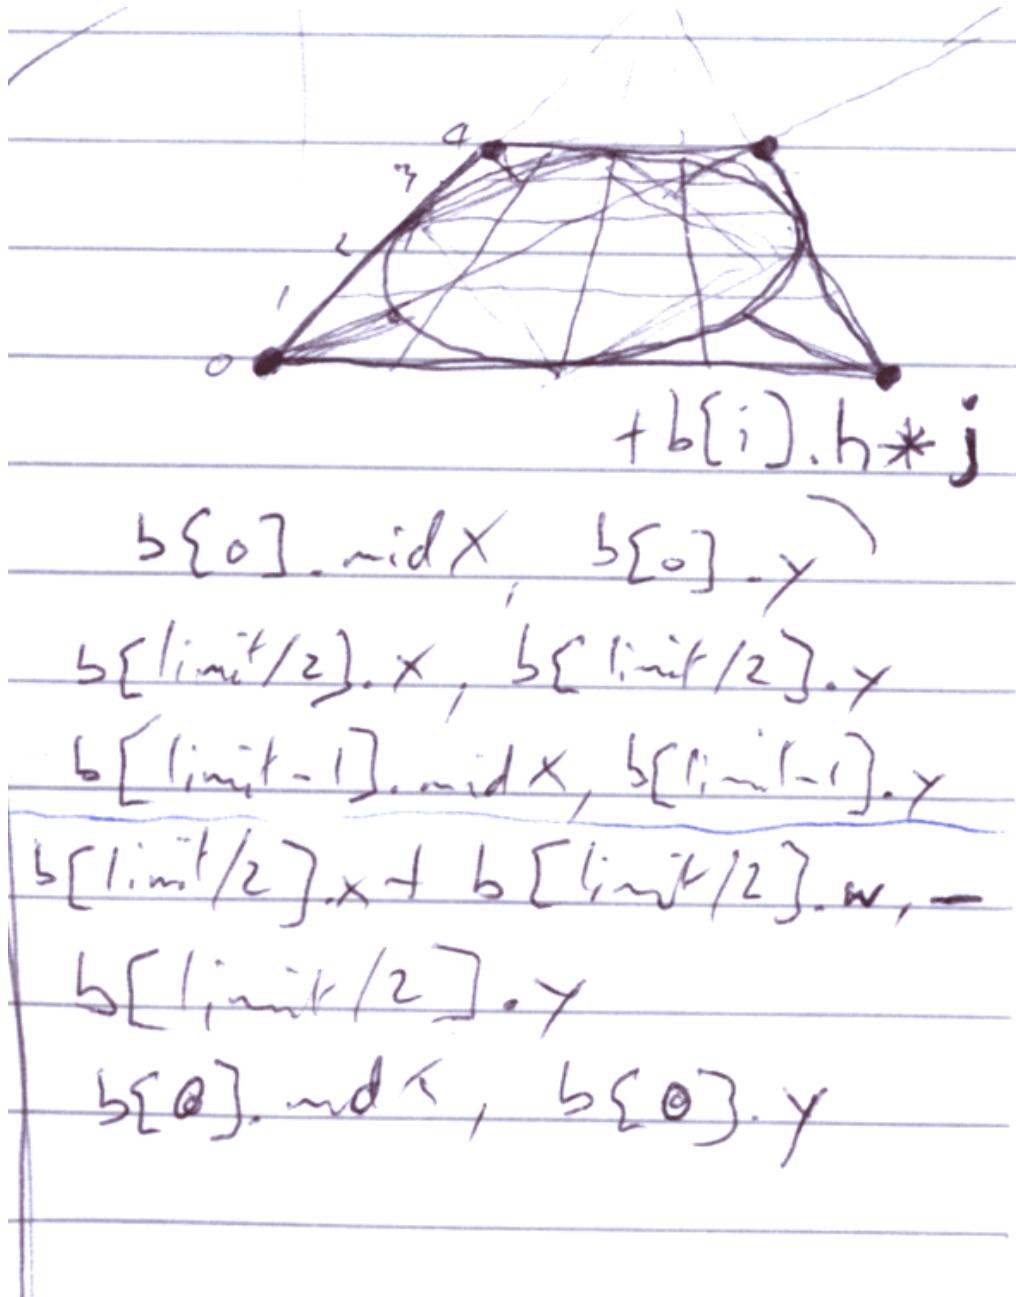 4
3
2
1
0
+ b[i].h * j
b[0].midX, b[0].y
b[limit/2].x, b[limit/2].y
b[limit-1].midX, b[limit-1].y
b[limit/2].x + b[limit/2].w, -
b[limit/2].y
b[0].midX, b[0].y